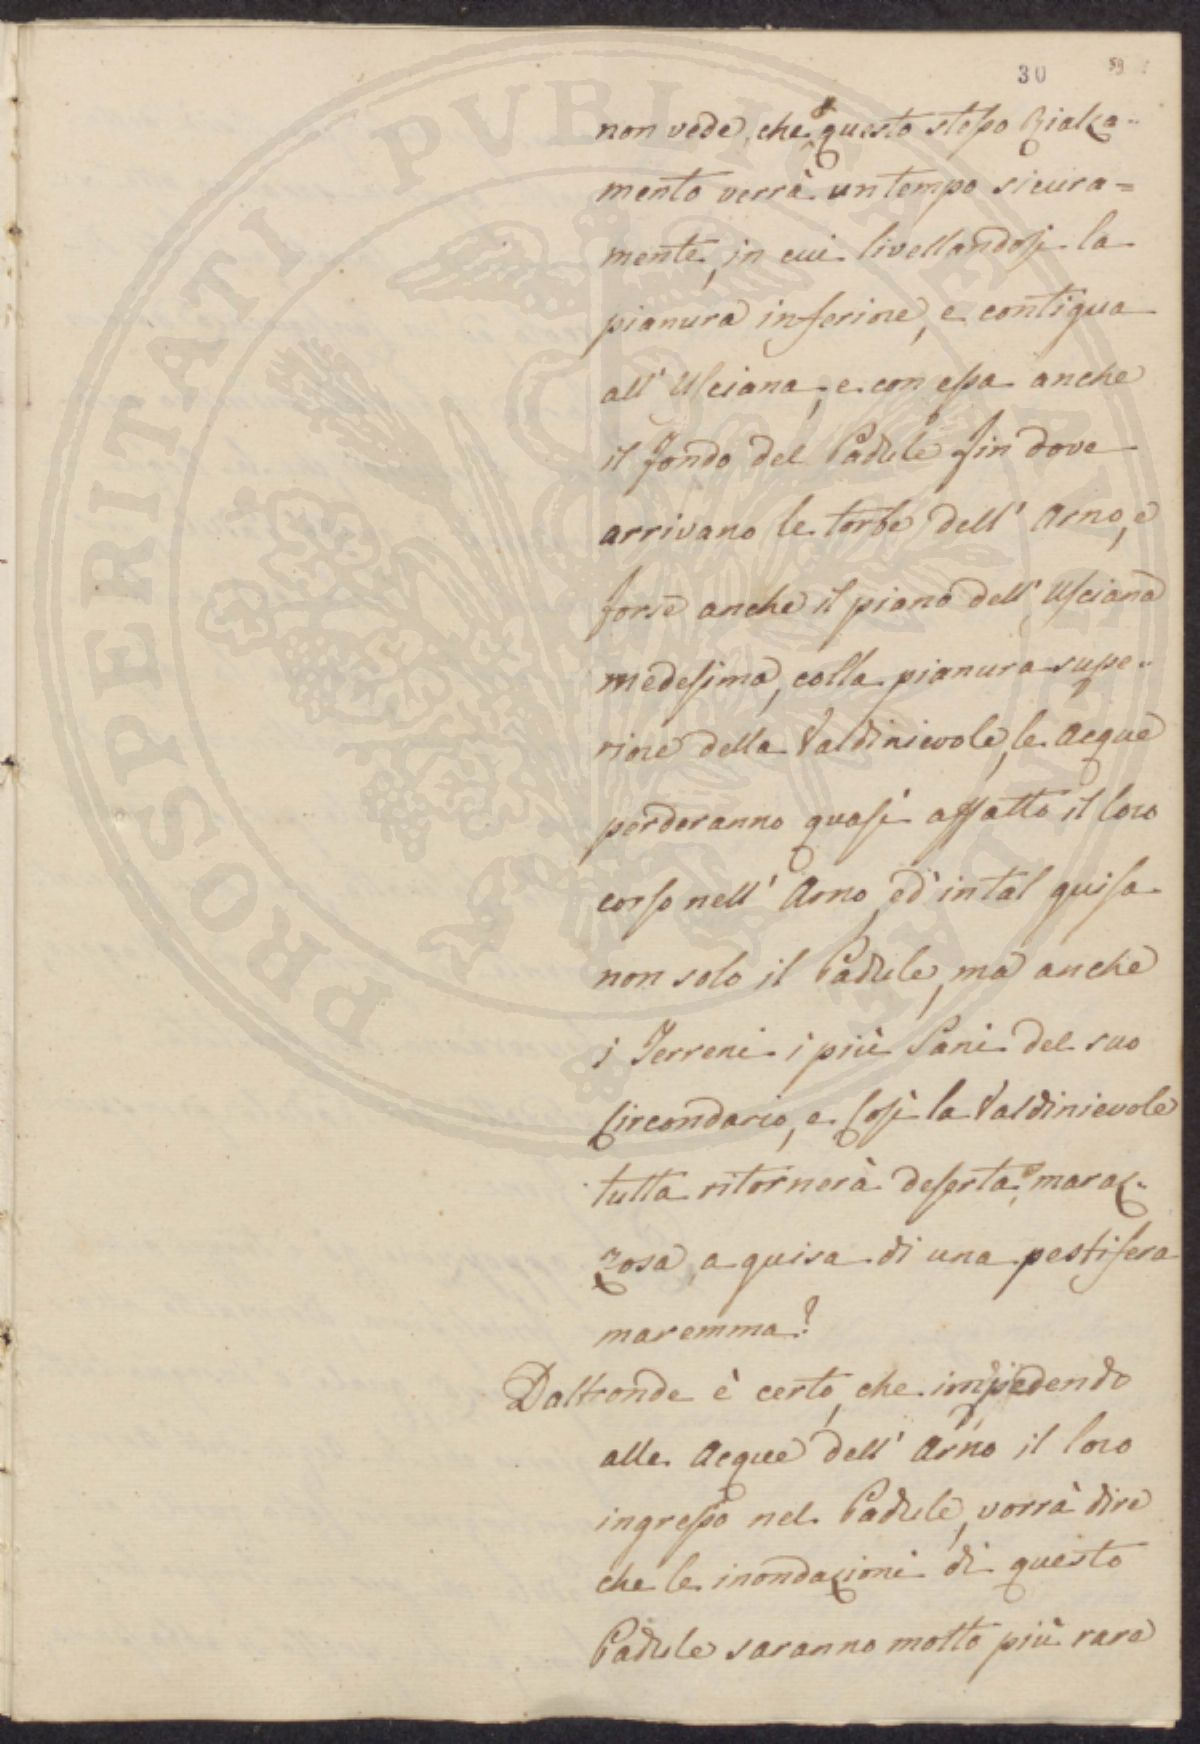 30 59
non vede, che questo stesso Rialza-
mento verrà un tempo sicura=
mente, in cui livellandosi la
pianura inferiore, e contigua
all' Usciana, e con essa anche
il fondo del Padule fin dove
arrivano le torbe dell' Arno, e
forse anche il piano dell' Usciana
medesima, colla pianura supe-
riore della Valdinievole, le Acque
perderanno quasi affatto il loro
corso nell' Arno, ed in tal guisa
non solo il Padule, ma anche
i Terreni i più Sani del suo
Circondario, e Così la Valdinievole
tutta ritornerà deserta, maraz-
zosa, a guisa di una pestifera
maremma?
Daltronde è certo, che impedendo
alle Acque dell' Arno il loro
ingresso nel Padule, vorrà dire
che le inondazioni di questo
Padule saranno molto più rare
PROSPERITATI PVBLICAE AVGENDAE